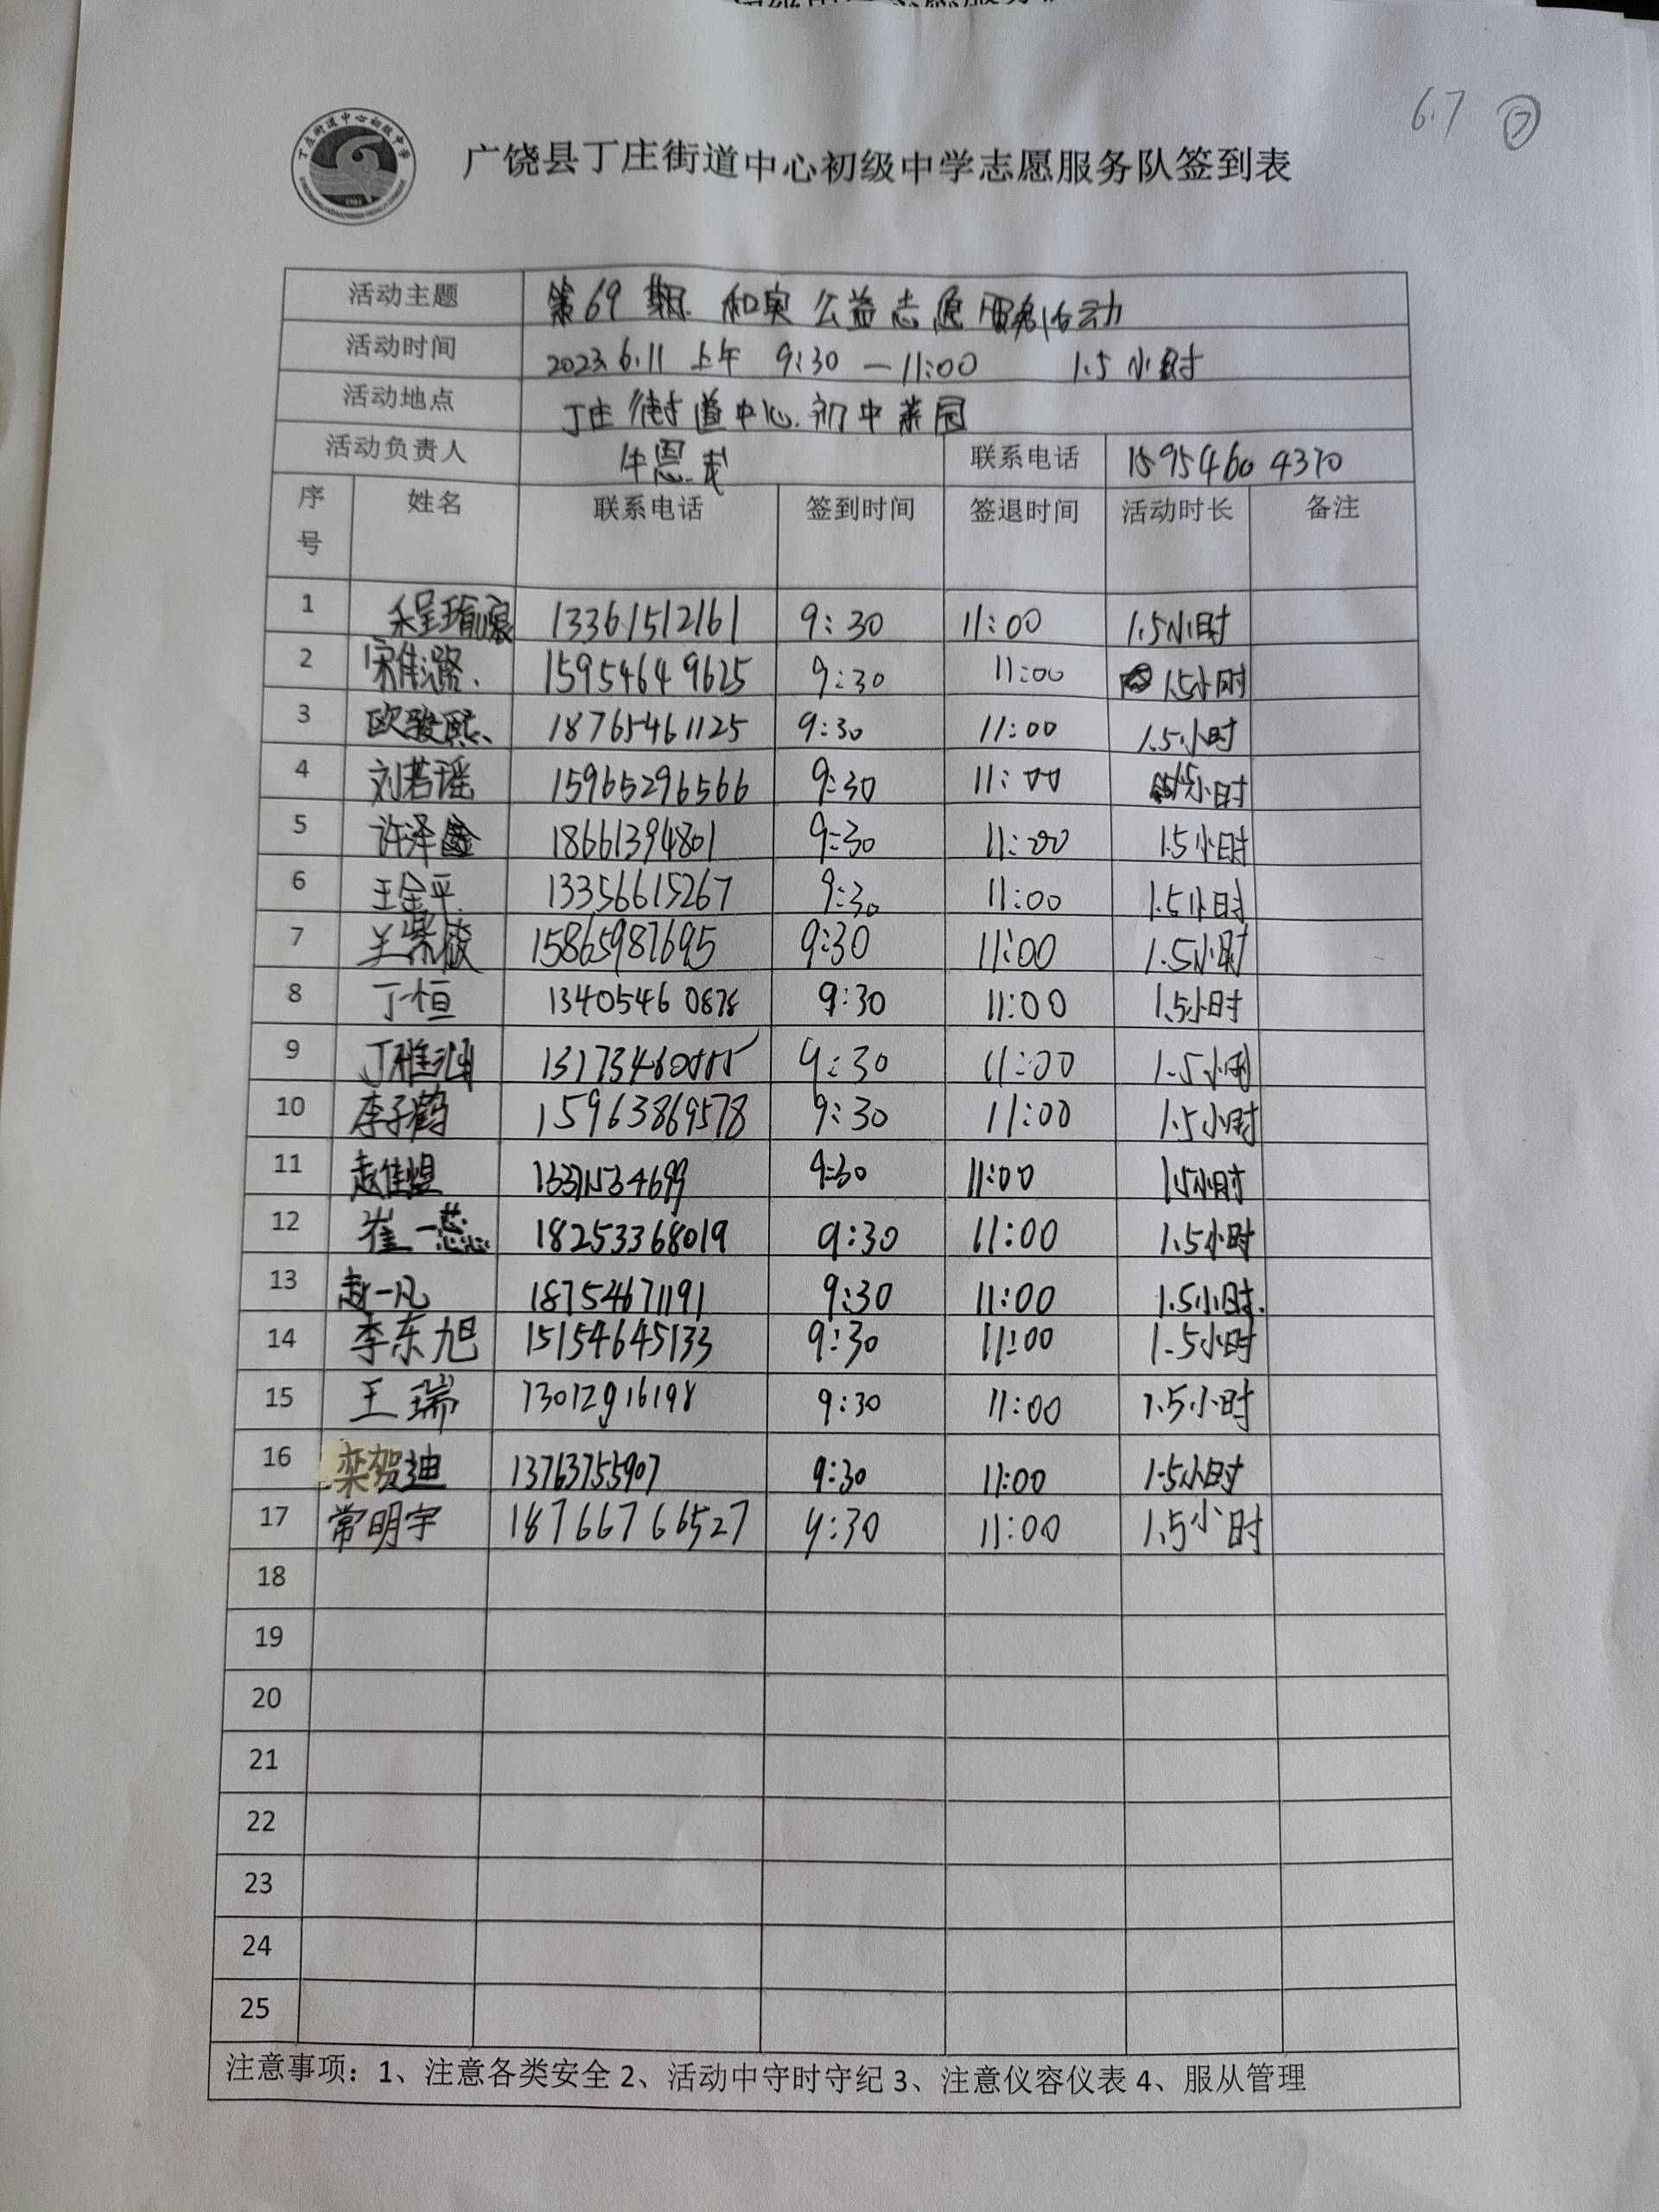 6.7 ⑦
丁庄街道中心初级中学
广饶县丁庄街道中心初级中学志愿服务队签到表
活动主题 第69期 和奥公益志愿服务活动
活动时间 2023.6.11 上午 9:30 — 11:00 1.5小时
活动地点 丁庄街道中心初中菜园
活动负责人 牛恩 联系电话 15954604370
序号 姓名 联系电话 签到时间 签退时间 活动时长 备注
1 13361512161 9:30 11:00 1.5小时
2 宋佳潞 15954649625 9:30 11:00 1.5小时
3 欧骏熙 18765461125 9:30 11:00 1.5小时
4 刘若瑶 15965296566 9:30 11:00 1.5小时
5 许泽鑫 18661394801 9:30 11:00 1.5小时
6 王金平 13356615267 9:30 11:00 1.5小时
7 15865987695 9:30 11:00 1.5小时
8 丁恒 13405460878 9:30 11:00 1.5小时
9 丁雅 9:30 11:00 1.5小时
10 李子鹤 15963869578 9:30 11:00 1.5小时
11 赵佳煜 9:30 11:00 1.5小时
12 崔一蕊 18253368019 9:30 11:00 1.5小时
13 赵一凡 18754671191 9:30 11:00 1.5小时.
14 李东旭 15154645133 9:30 11:00 1.5小时
15 王瑞 13012916198 9:30 11:00 1.5小时
16 栾贺迪 13763755907 9:30 11:00 1.5小时
17 常明宇 187667 66527 9:30 11:00 1.5小时
18
19
20
21
22
23
24
25
注意事项：1、注意各类安全 2、活动中守时守纪 3、注意仪容仪表 4、服从管理